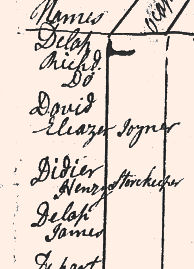 Names
Delap
Richd.
Do
David
Eleazer Joyner
Didier
Henry Storekeeper
Delap
James